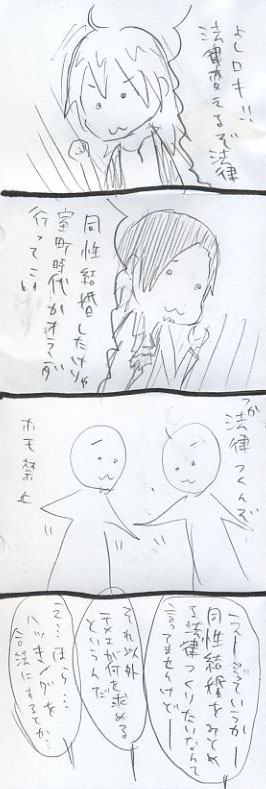 よしロキ!!
法律変えるぞ法律
同性結婚したけりゃ
室町時代かオランダ
行ってこい
つか
法律つくんぞ
ホモ禁止
えーってていうかー
同性結婚をみとめ
る法律つくりたいなんて
言ってませんけどー
それ以外
テメェが何を求める
というんだ
え…ほら…
ハッキングを
合法にするとか…